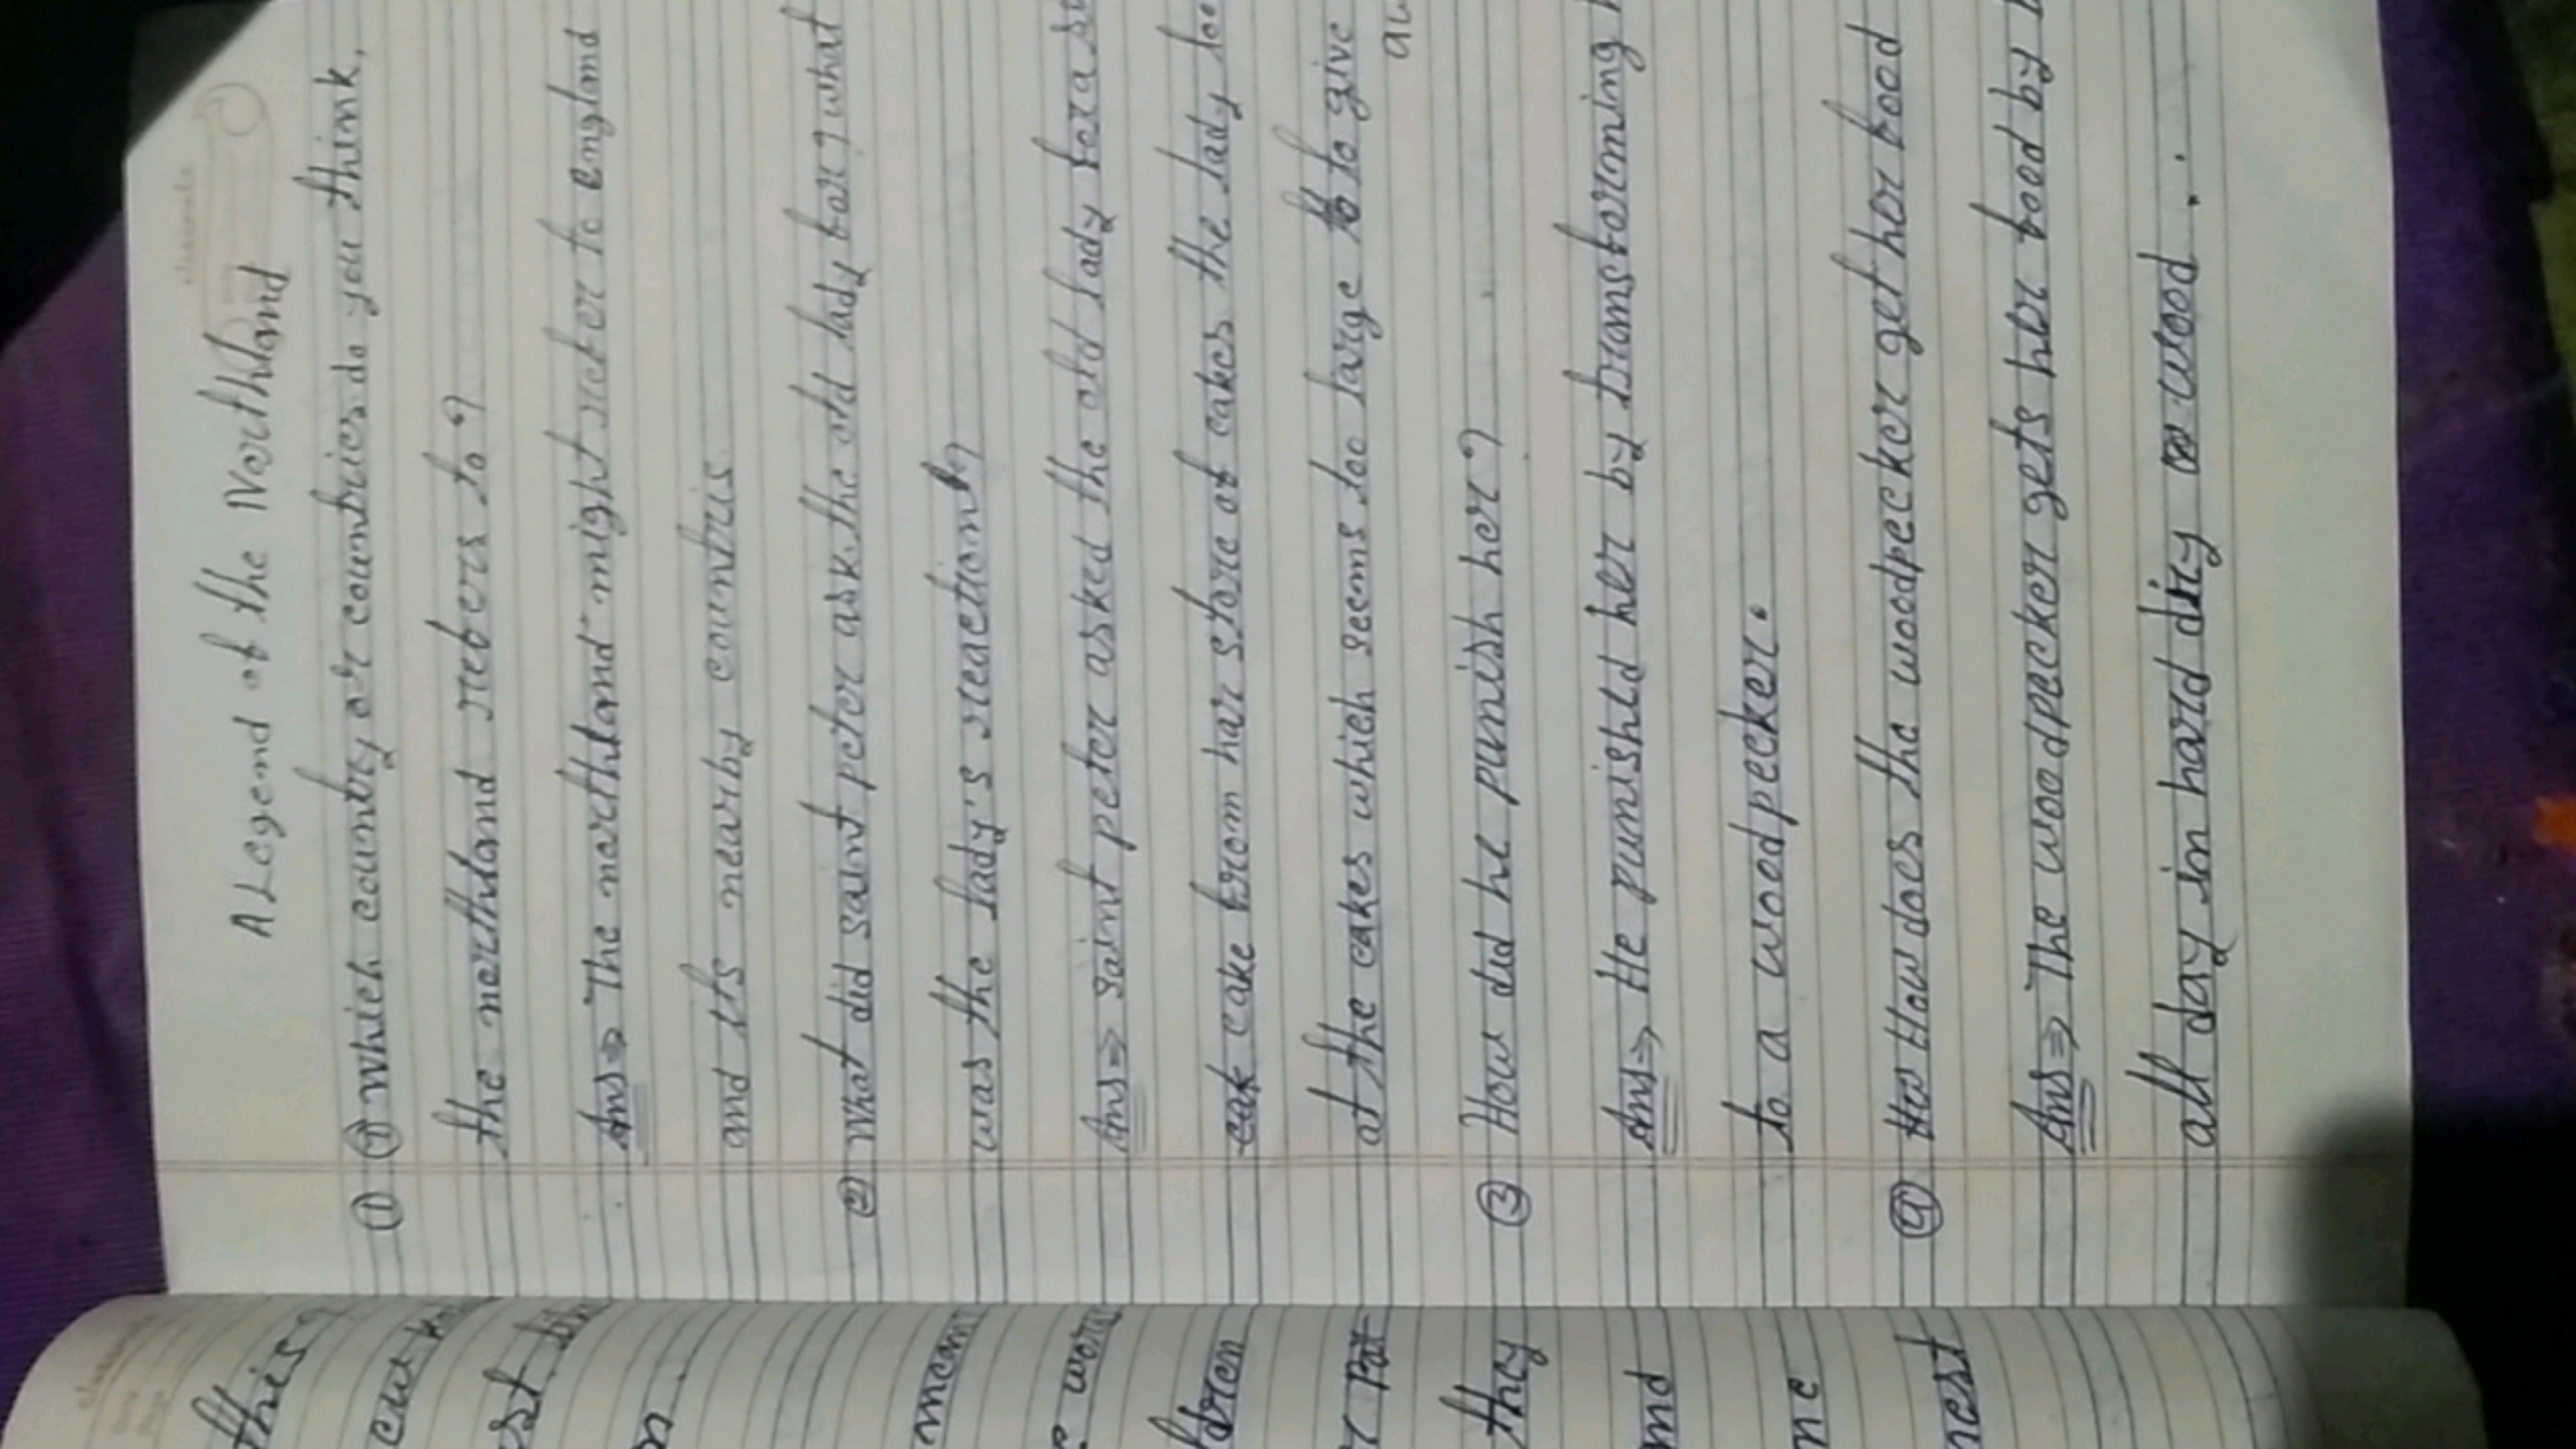 A Legend of the Northland
① ① Which country or countries do you think,
the northland refers to?
Ans ⇒ The northland might refer to england
and its nearby countris.
② What did saint peter ask the old lady for? what
was the lady's reaction?
Ans ⇒ saint peter asked the old lady for a
cake from har store of cakes the lady
at the cakes which seems too large to give
③ How did he punish her?
Ans ⇒ He punishld her by transforming
to a woodpecker.
④ How does the woodpecker get her food
Ans ⇒ The woodpecker gets her food by
all day in hard dry wood.
this?
mean
they